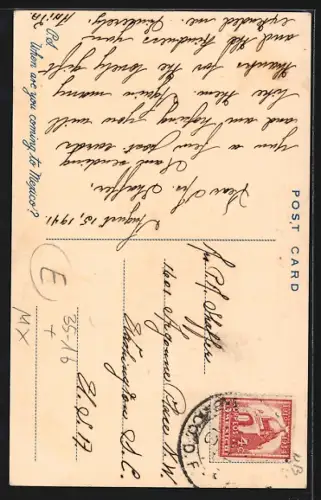 POST CARD
August 15, 1941.
Dear Mr. Shaffer,
I am sending
you a few post cards
and am hoping you will
like them. Again many
thanks for the lovely gift
and the kindness you
extended me. Sincerely,
P.S.
When are you coming to Mexico?
Mr. P. J. Shaffer
1601 Argonne Place N.W.
Washington D.C.
U.S.A.
MEXICO D.F.
4¢
E
35-16
+
MX